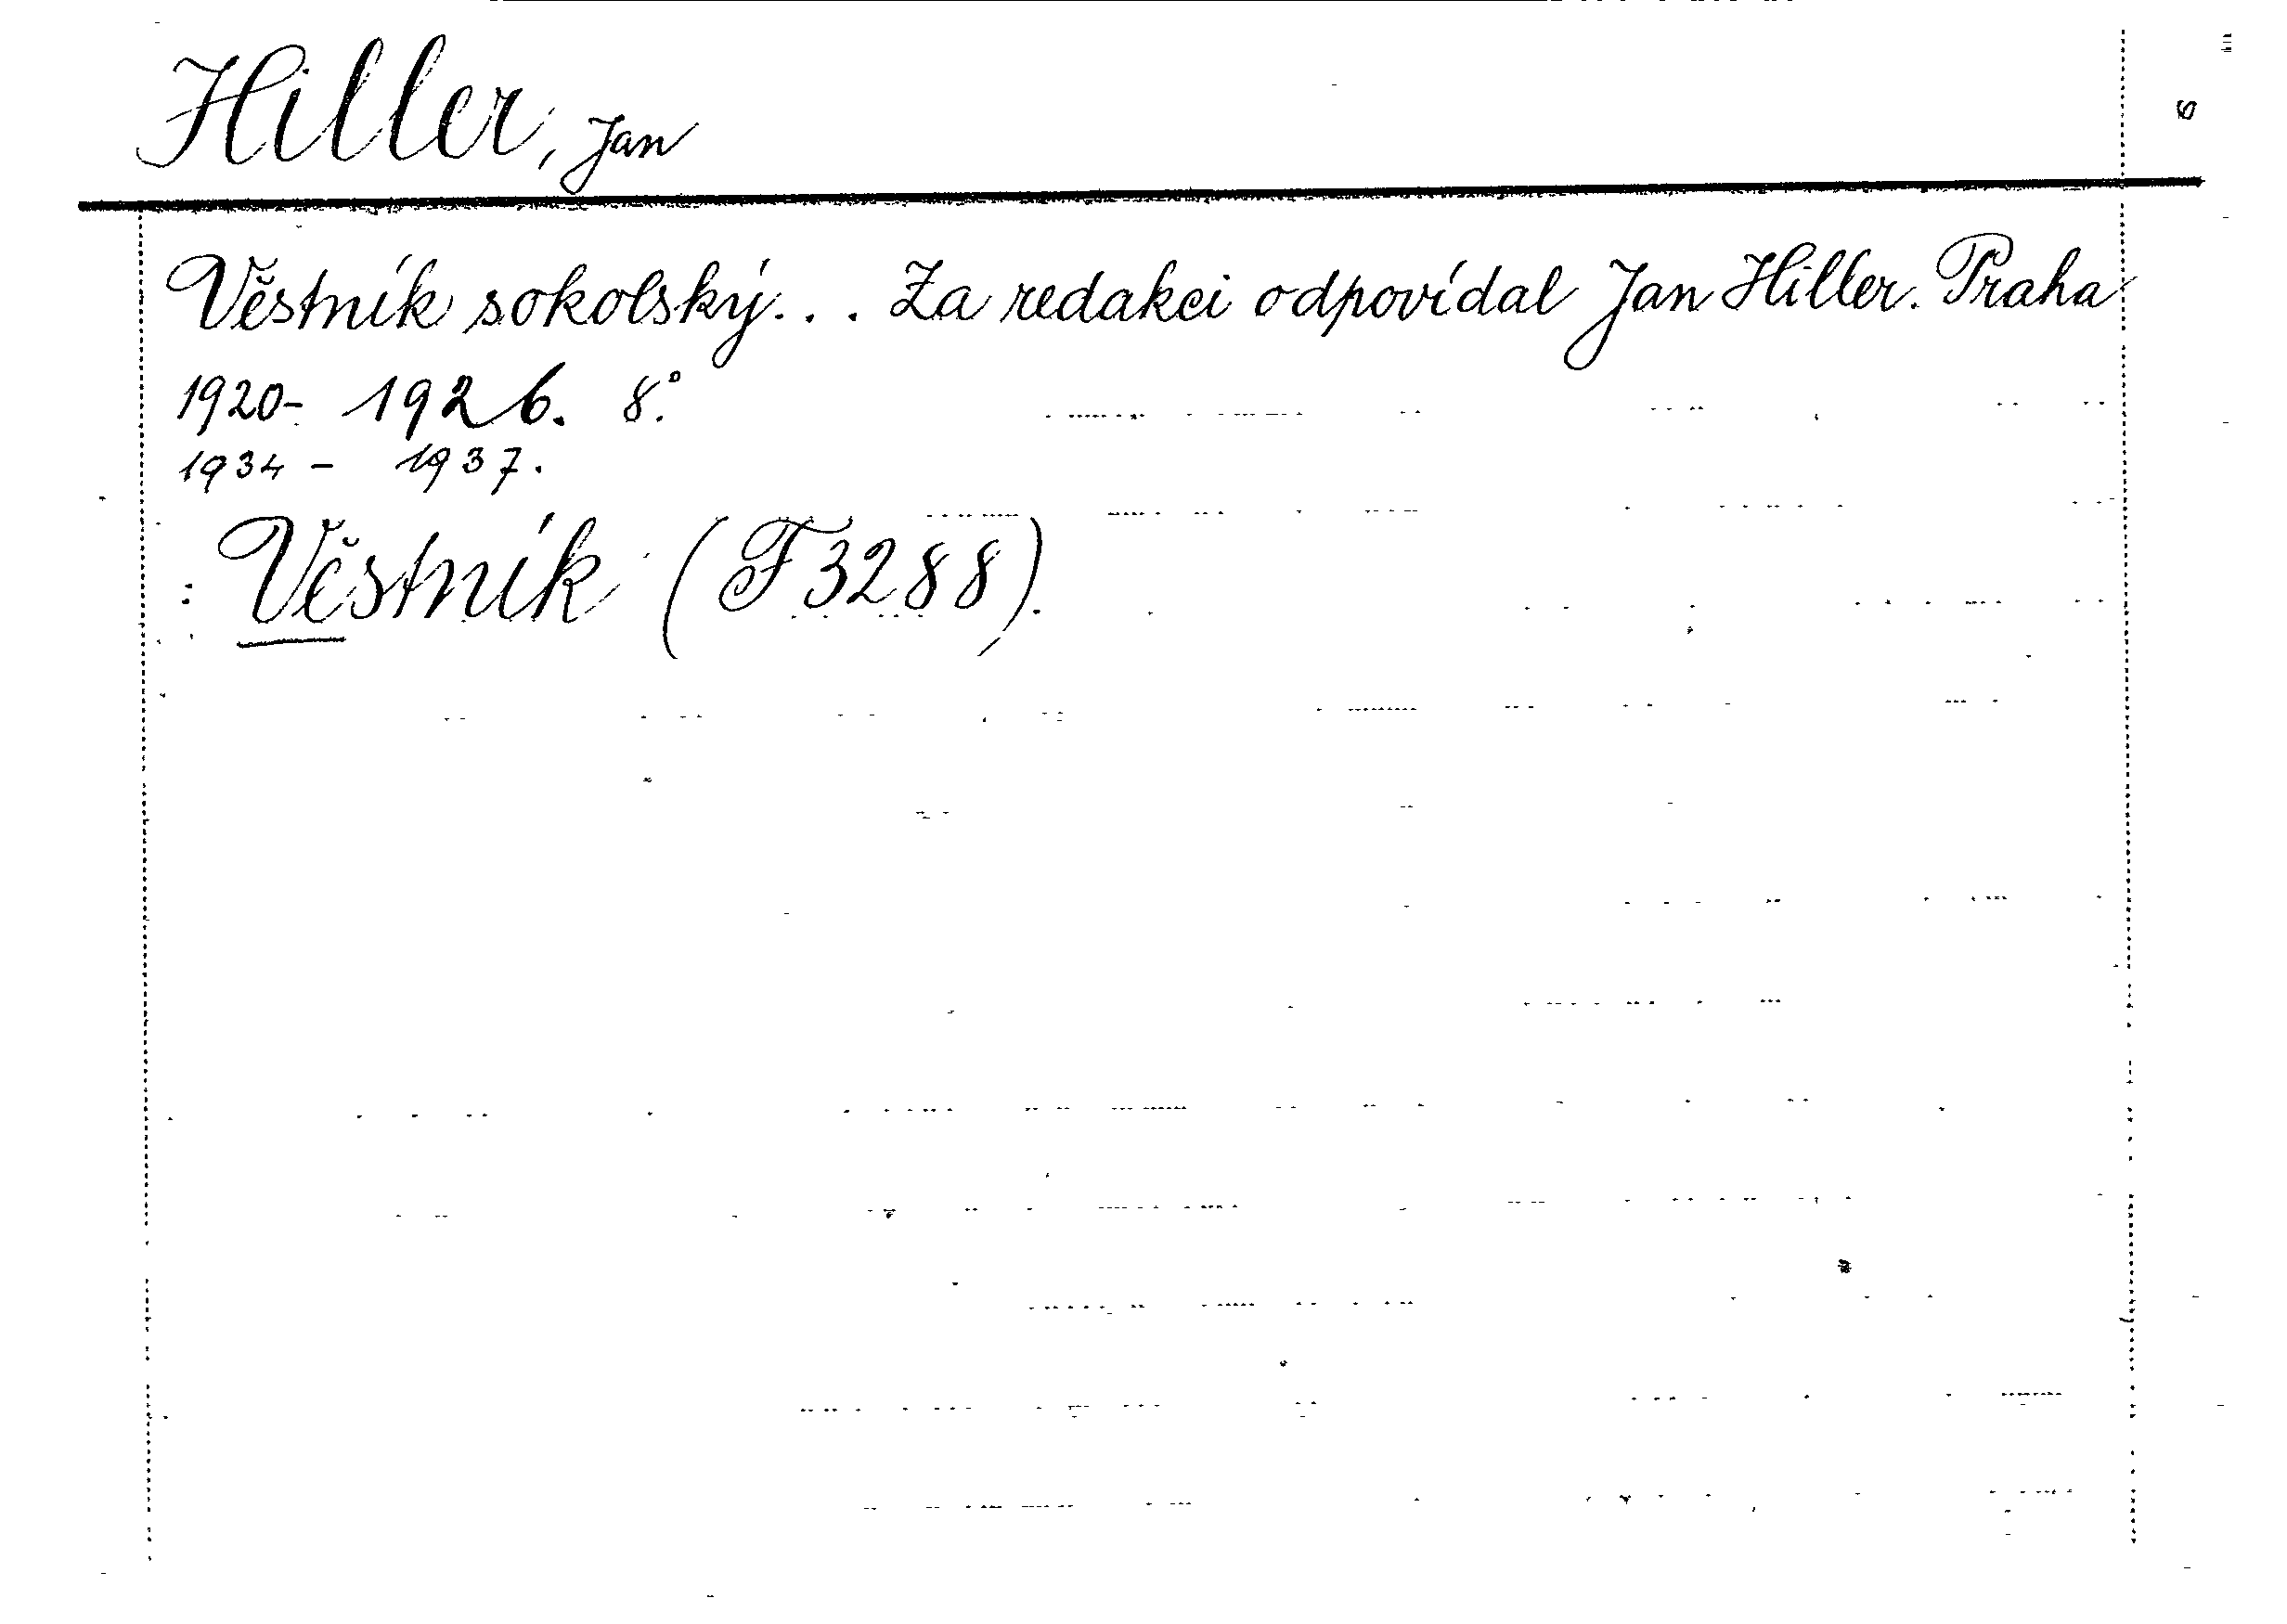 Hiller, Jan
Věstník sokolský... Za redakci odpovídal Jan Hiller. Praha
1920- 1926. 8°.
1934 - 1937.
: Věstník (F 3288).